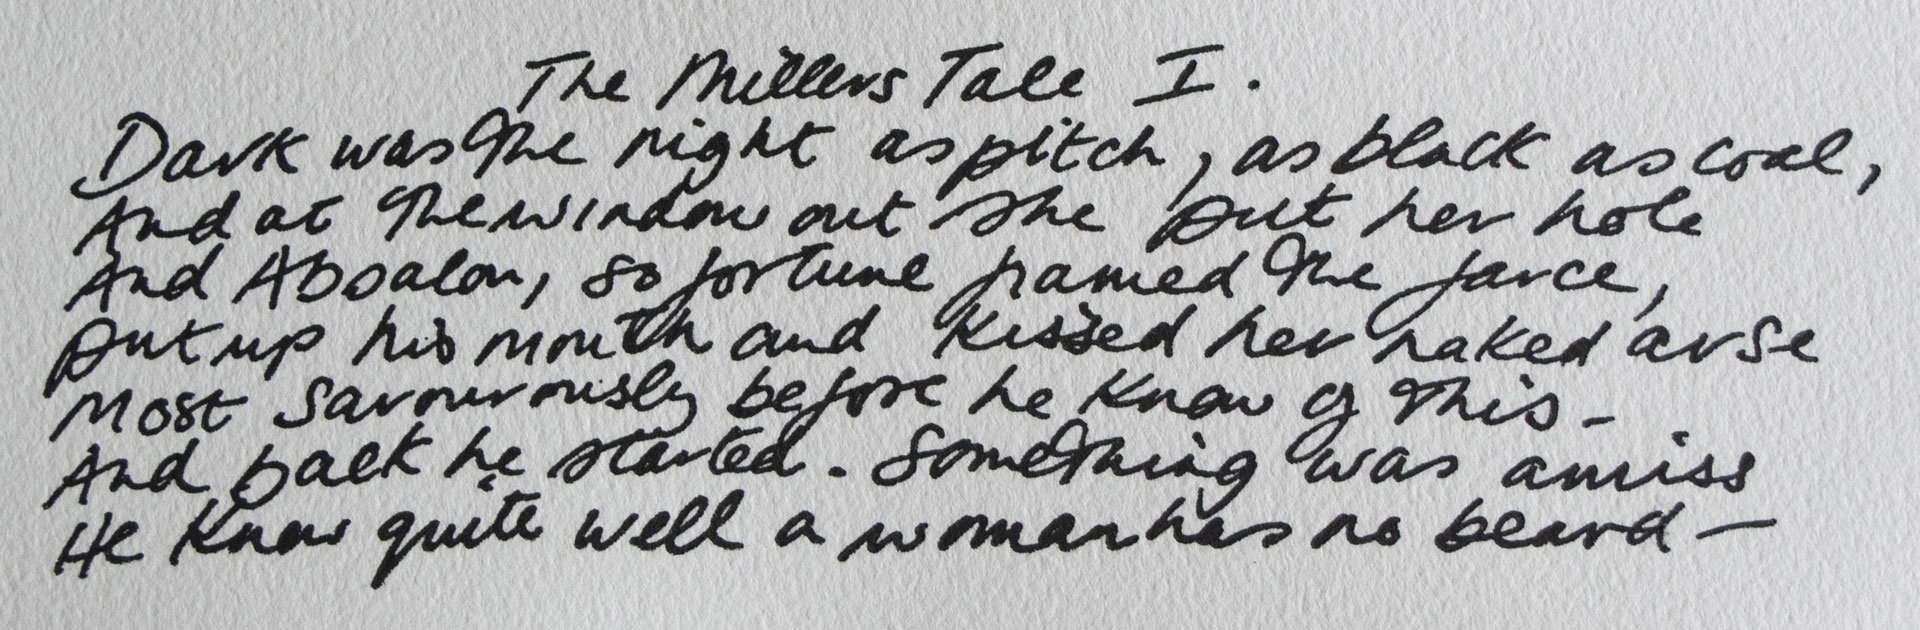 The Millers Tale I.
Dark was the night as pitch, as black as coal,
And at the window out she put her hole
And Absalon, so fortune framed the farce,
put up his mouth and kissed her naked arse
Most savourously before he knew of this -
And back he started. Something was amiss
He knew quite well a woman has no beard -